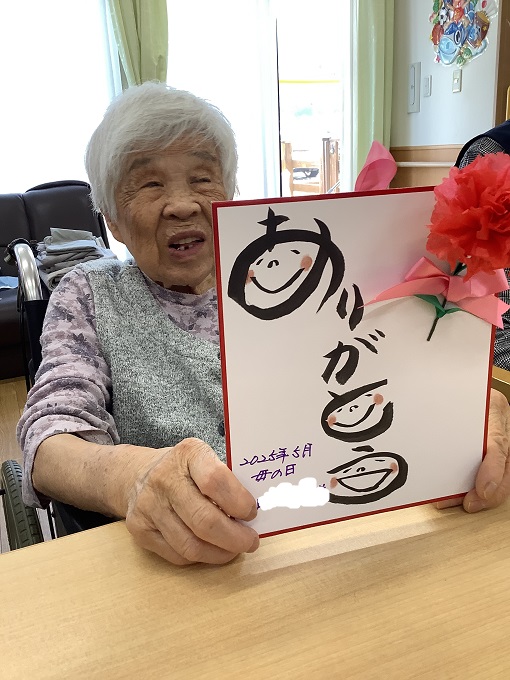 ありがとう
2025年5月
母の日